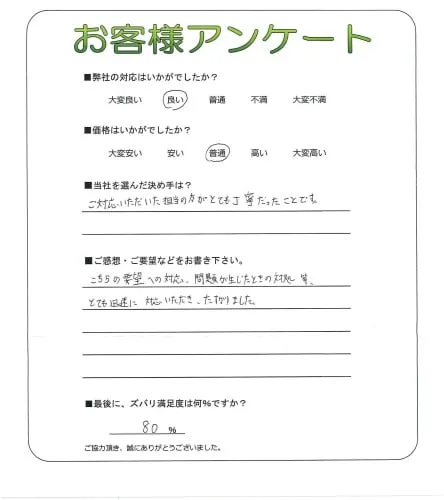 お客様アンケート
■弊社の対応はいかがでしたか？
大変良い 良い 普通 不満 大変不満
■価格はいかがでしたか？
大変安い 安い 普通 高い 大変高い
■当社を選んだ決め手は？
ご対応いただいた担当の方がとても丁寧だったことです。
■ご感想・ご要望などをお書き下さい。
こちらの要望への対応、問題が生じたときの対処 等、
とても迅速に 対応いただき、たすかりました。
■最後に、ズバリ満足度は何%ですか？
80 %
ご協力頂き、誠にありがとうございました。